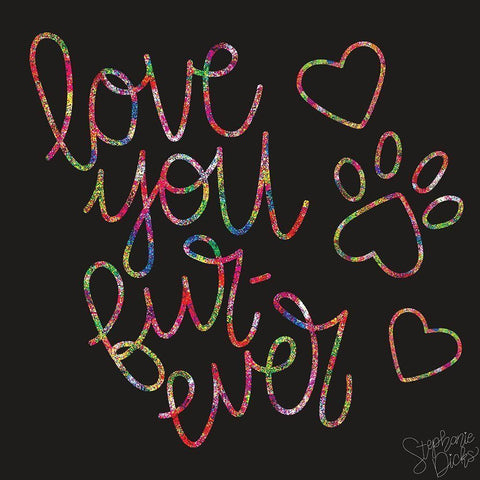 love
you
fur-
ever
Stephanie
Dicks